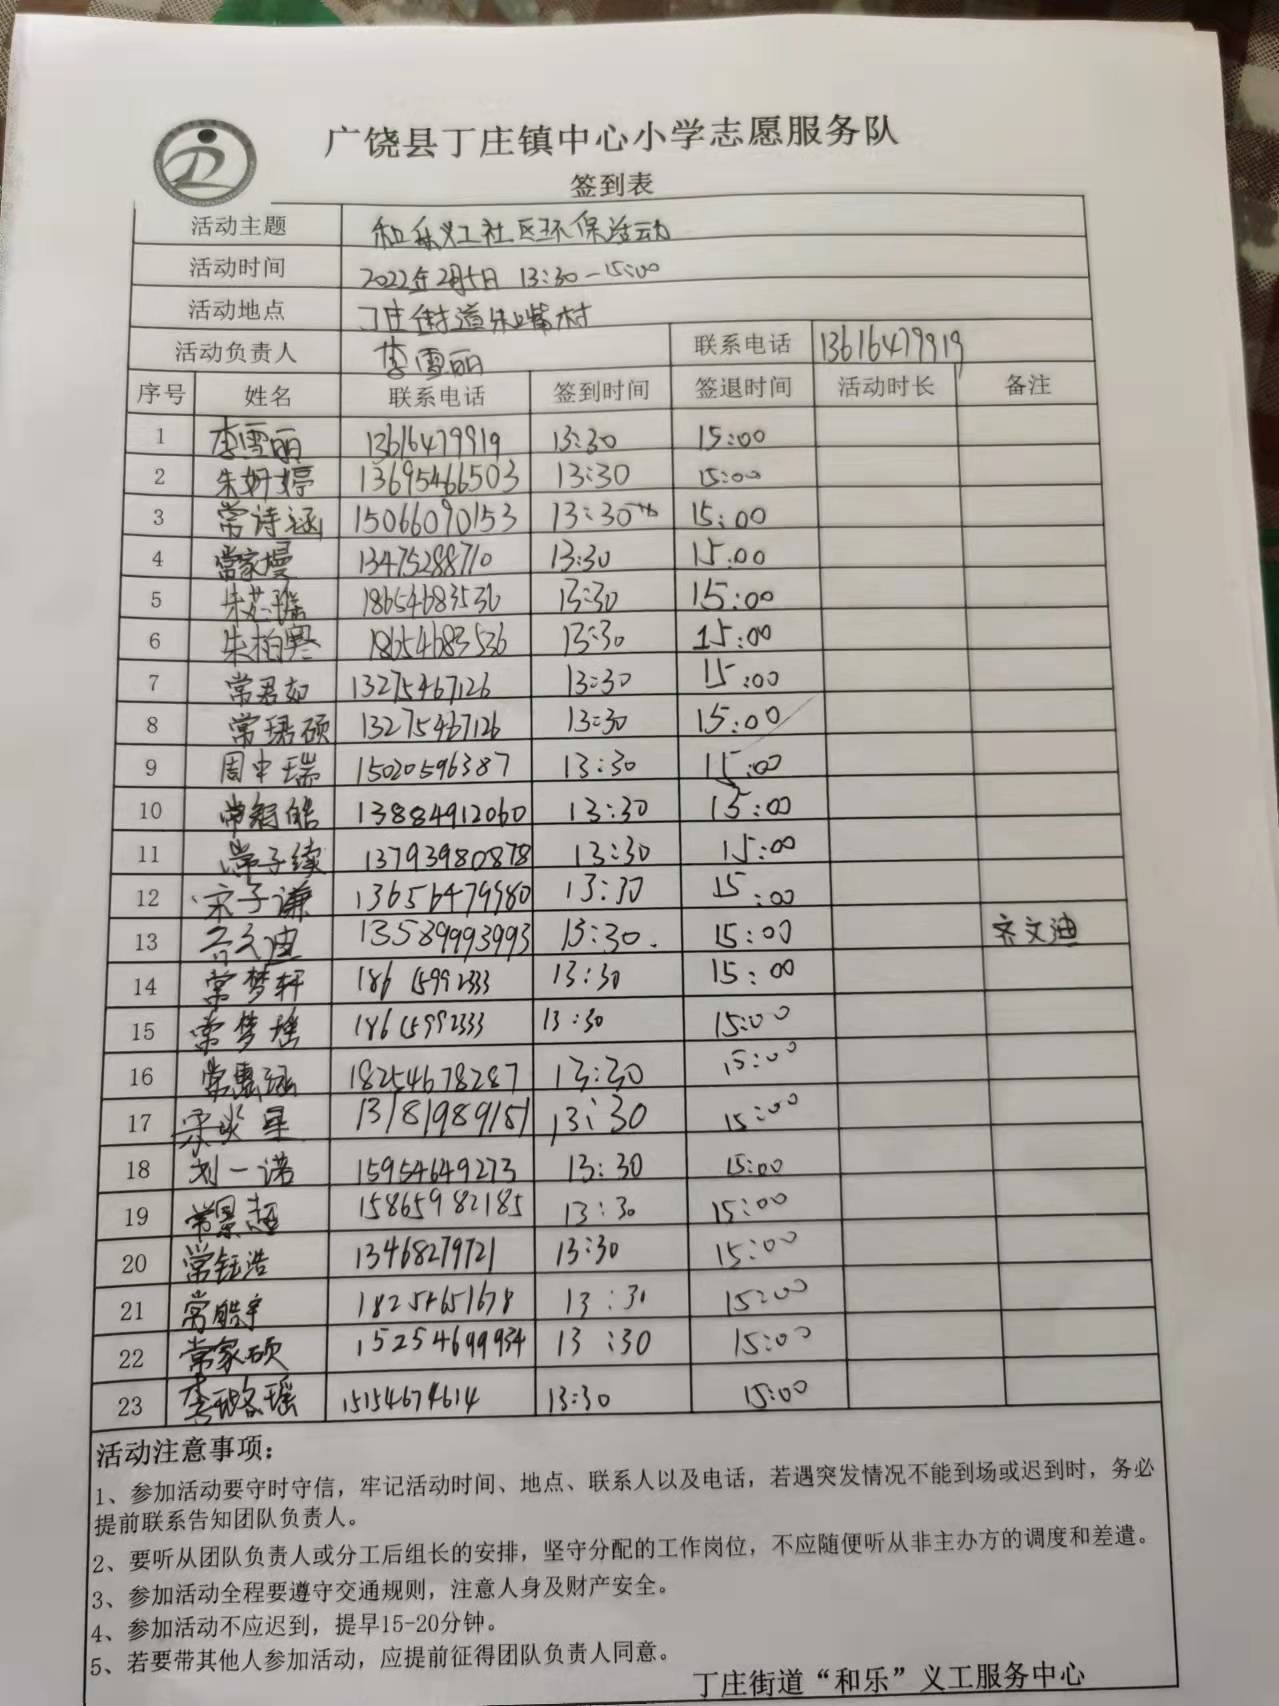 广饶县丁庄镇中心小学志愿服务队
签到表
活动主题 和乐义工社区环保活动
活动时间 2022年2月5日 13:30-15:00
活动地点 丁庄街道朱嘴村
活动负责人 李雪丽 联系电话 13616479919
序号 姓名 联系电话 签到时间 签退时间 活动时长 备注
1 李雪丽 13616479919 13:30 15:00
2 朱妍婷 13695466503 13:30 15:00
3 常诗涵 15066090153 13:30 15:00
4 常家熳 13475288710 13:30 15:00
5 朱芯瑶 18654683536 13:30 15:00
6 朱柏寒 18654683536 13:30 15:00
7 常君如 13275467126 13:30 15:00
8 常珺硕 13275467126 13:30 15:00
9 周中瑞 15020596387 13:30 15:00
10 13884912060 13:30 15:00
11 常子续 13793980878 13:30 15:00
12 宋子谦 13656479980 13:30 15:00
13 齐文迪 13589993993 13:30. 15:00 齐文迪
14 常梦轩 18615992333 13:30 15:00
15 常梦瑶 18615992333 13:30 15:00
16 常惠涵 18254678287 13:30 15:00
17 13181989151 13:30 15:00
18 刘一诺 15954649273 13:30 15:00
19 常景超 15865982185 13:30 15:00
20 常钰浩 13468279721 13:30 15:00
21 常皓宇 18254651678 13:30 15:00
22 常家硕 15254699934 13:30 15:00
23 李璐瑶 15154674614 13:30 15:00
活动注意事项：
1、参加活动要守时守信，牢记活动时间、地点、联系人以及电话，若遇突发情况不能到场或迟到时，务必
提前联系告知团队负责人。
2、要听从团队负责人或分工后组长的安排，坚守分配的工作岗位，不应随便听从非主办方的调度和差遣。
3、参加活动全程要遵守交通规则，注意人身及财产安全。
4、参加活动不应迟到，提早15-20分钟。
5、若要带其他人参加活动，应提前征得团队负责人同意。
丁庄街道“和乐”义工服务中心